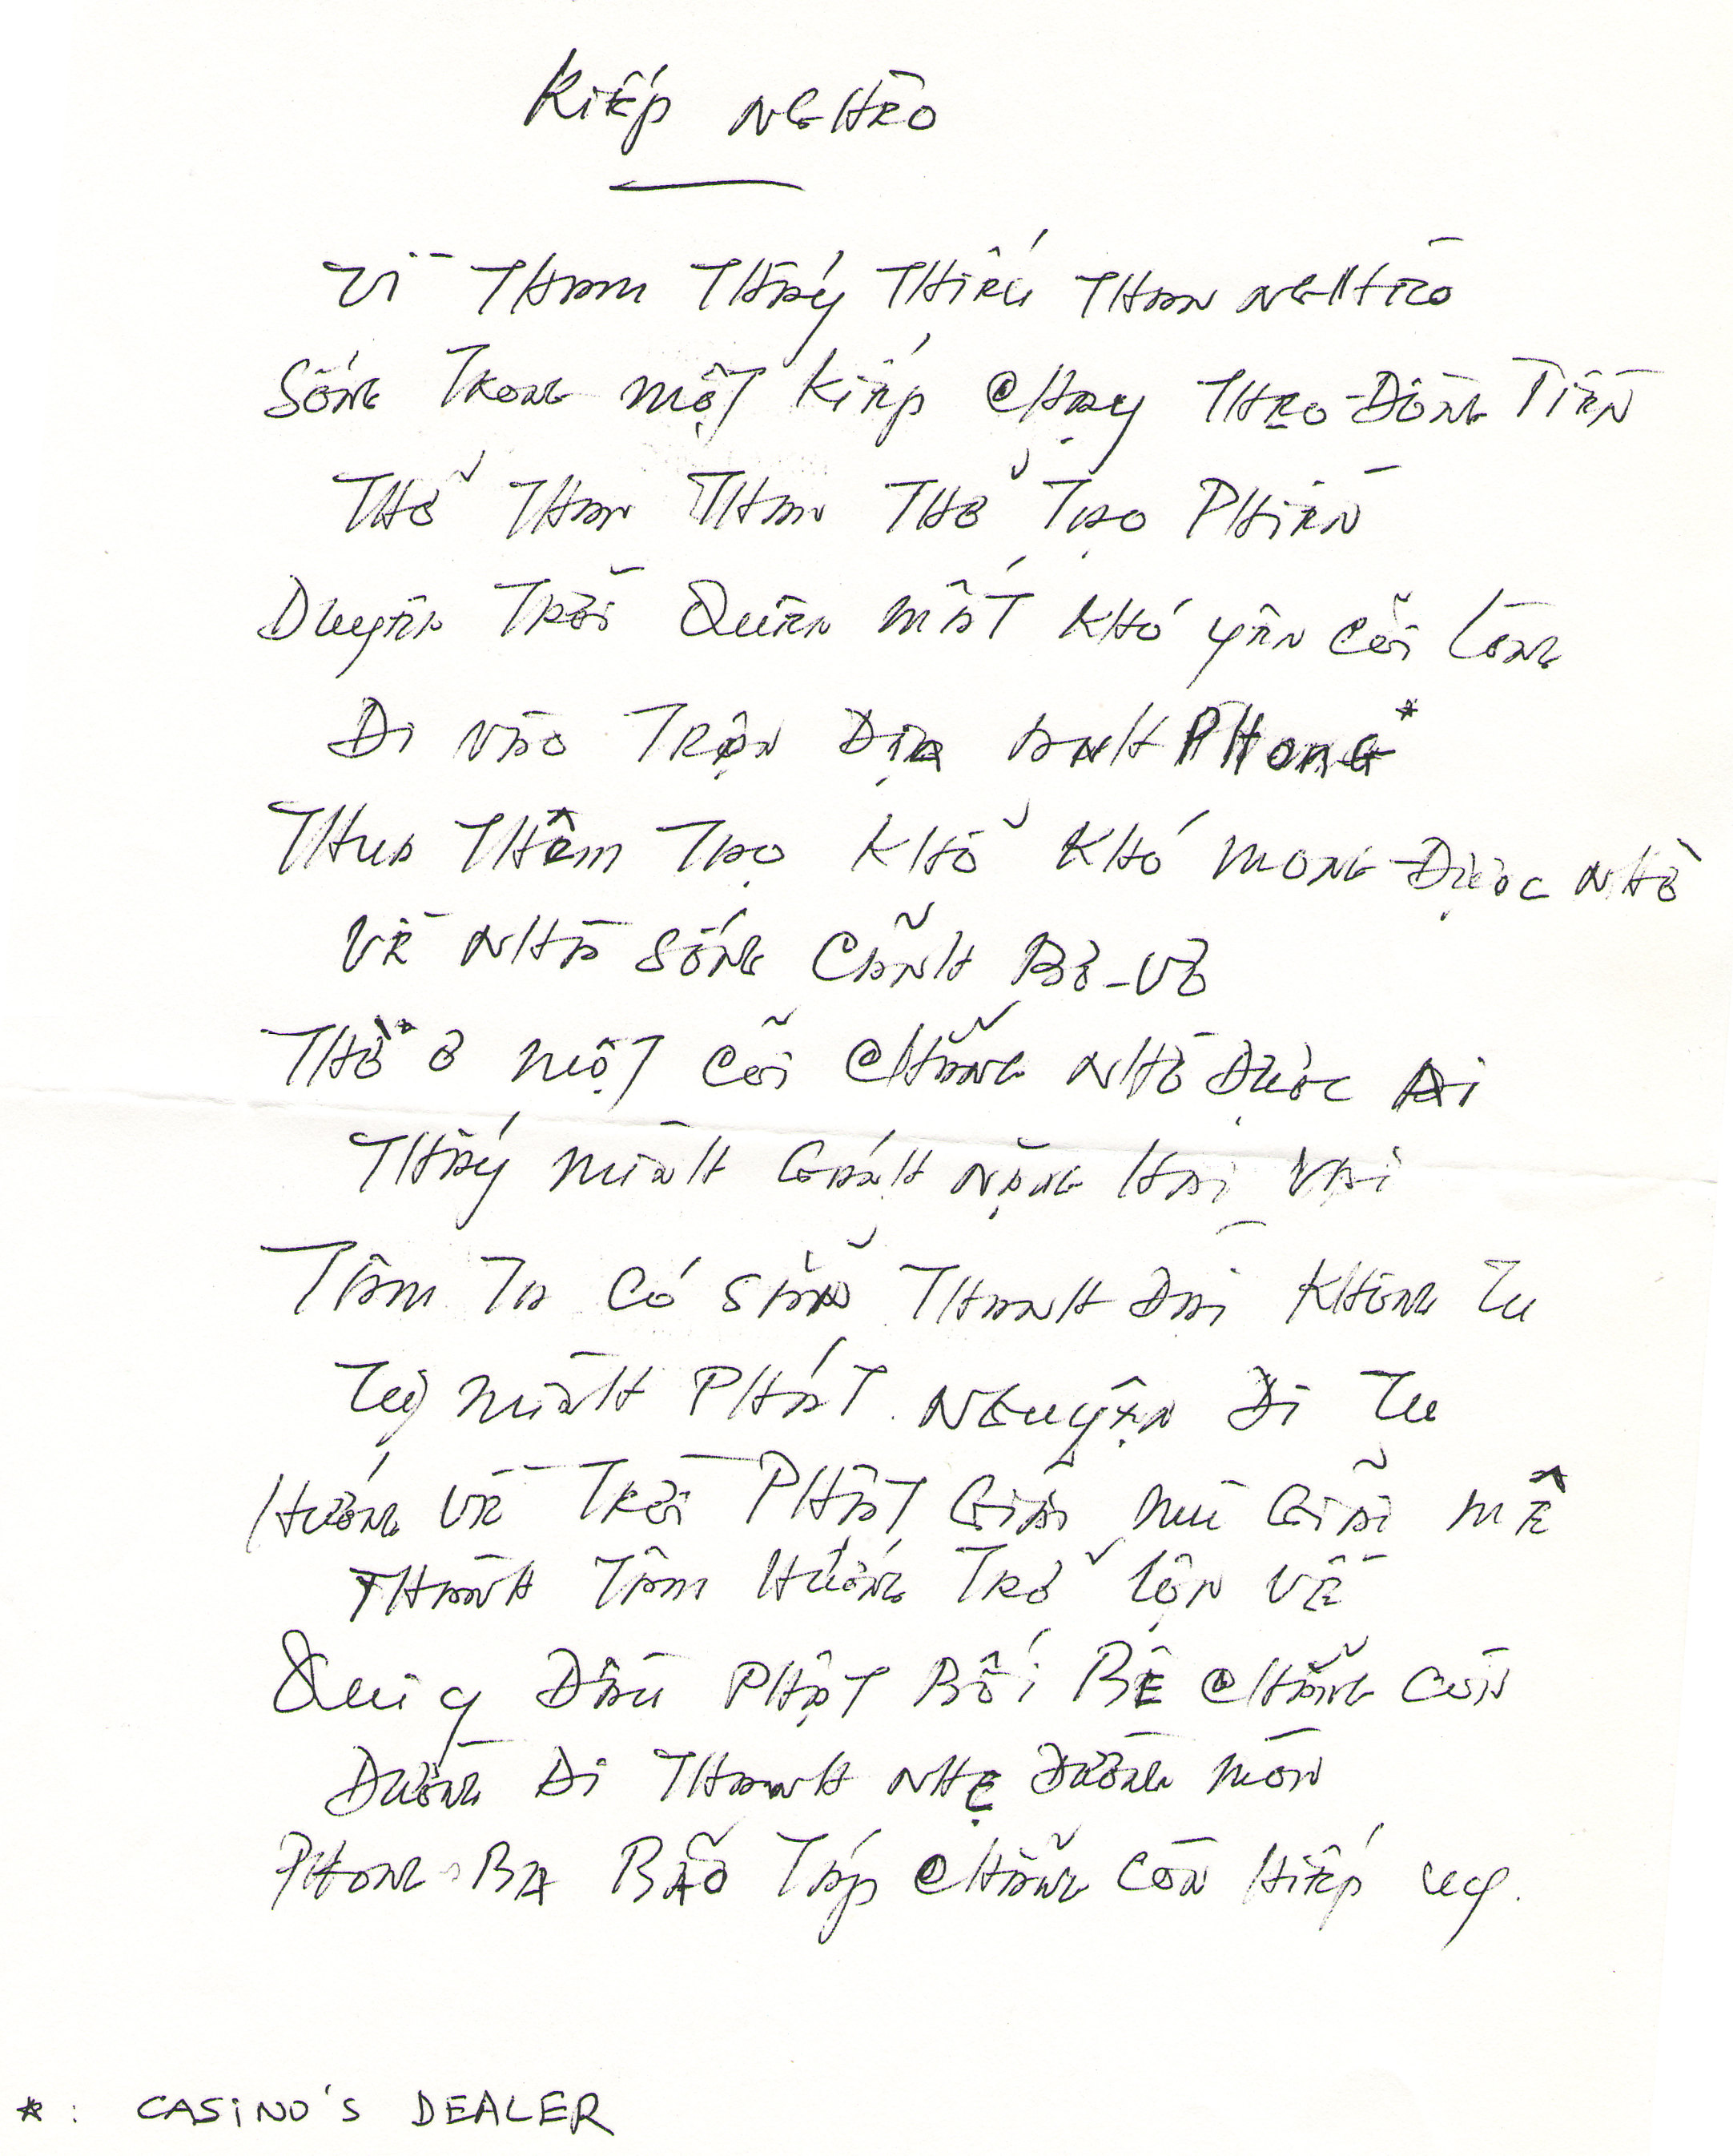 Kiếp Nghèo
Vì Tham Thấy Thiếu Than Nghèo
Sống Trong Một Kiếp Chạy Theo Đồng Tiền
Thở Than Than Thở Tạo Phiền
Duyên Trời Quên Mất Khó Yên Cõi Lòng
Đi Vào Trận Địa Anh Phong*
Thua Thêm Tạo Khổ Khó Mong Được Nhờ
Về Nhà Sống Cảnh Bơ-Vơ
Thờ Ơ Một Cõi Chẳng Nhờ Được Ai
Thấy Mình Gánh Nặng Hai Vai
Tâm Ta Có Sẵn Thanh Đài Không Tu
Tự Mình Phát Nguyện Đi Tu
Hướng Về Trời Phật Giải Mù Giải Mê
Thành Tâm Hướng Trở Lộn Về
Qui Y Đầu Phật Bối Bê Chẳng Còn
Đường Đi Thanh Nhẹ Đường Mòn
Phong Ba Bão Táp Chẳng Còn Hiếp Uy.
*: CASINO'S DEALER